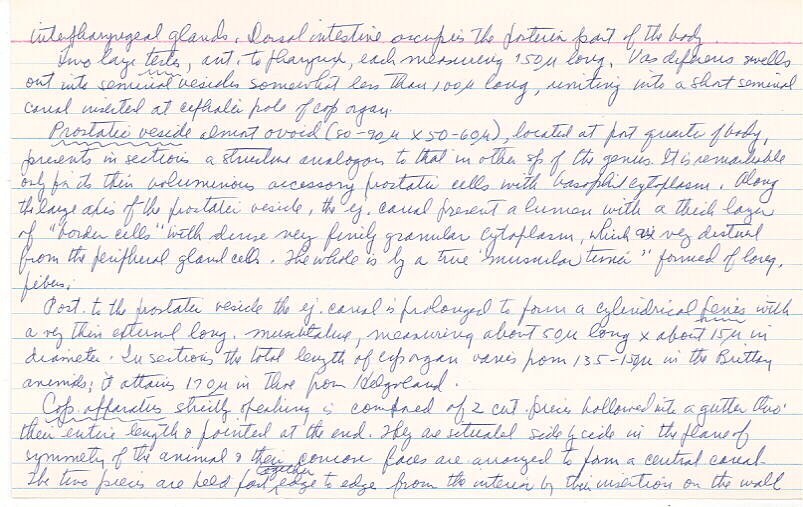 interpharyngeal glands. Dorsal intestine occupies the posterior part of the body.
Two large testes, ant. to pharynx, each measuring 150µ long. Vas deferens swells
out into seminal vesicles somewhat less than 100µ long, uniting into a short seminal
canal inserted at cephalic pole of cop organ.
Prostatic vesicle almost ovoid (50-90µ x 50-60µ), located at post quarter of body,
presents in sections a structure analogous to that in other sp of the genus. It is remarkable
only for its thin voluminous accessory prostatic cells with basophil cytoplasm. Along
the large axis of the prostatic vesicle, the ej. canal present a lumen with a thick layer
of "border cells" with dense very finely granular cytoplasm, which are very distinct
from the peripheral gland cells. The whole is by a true "muscular tunic" formed of long.
fibers.
Post. to the prostatic vesicle the ej. canal is prolonged to form a cylindrical penis with
a very thin external long. musculature, measuring about 50µ long x about 15µ in
diameter. In sections the total length of cop organ varies from 135-150µ in the Brittany
animals; it attains 170µ in those from Helgoland.
Cop. apparatus strictly speaking is composed of 2 cut. pieces hollowed into a gutter thro'
their entire length & pointed at the end. They are situated side by side in the plane of
symmetry of the animal & their concave faces are arranged to form a central canal.
The two pieces are held fast together edge to edge from the interior by their insertion on the wall